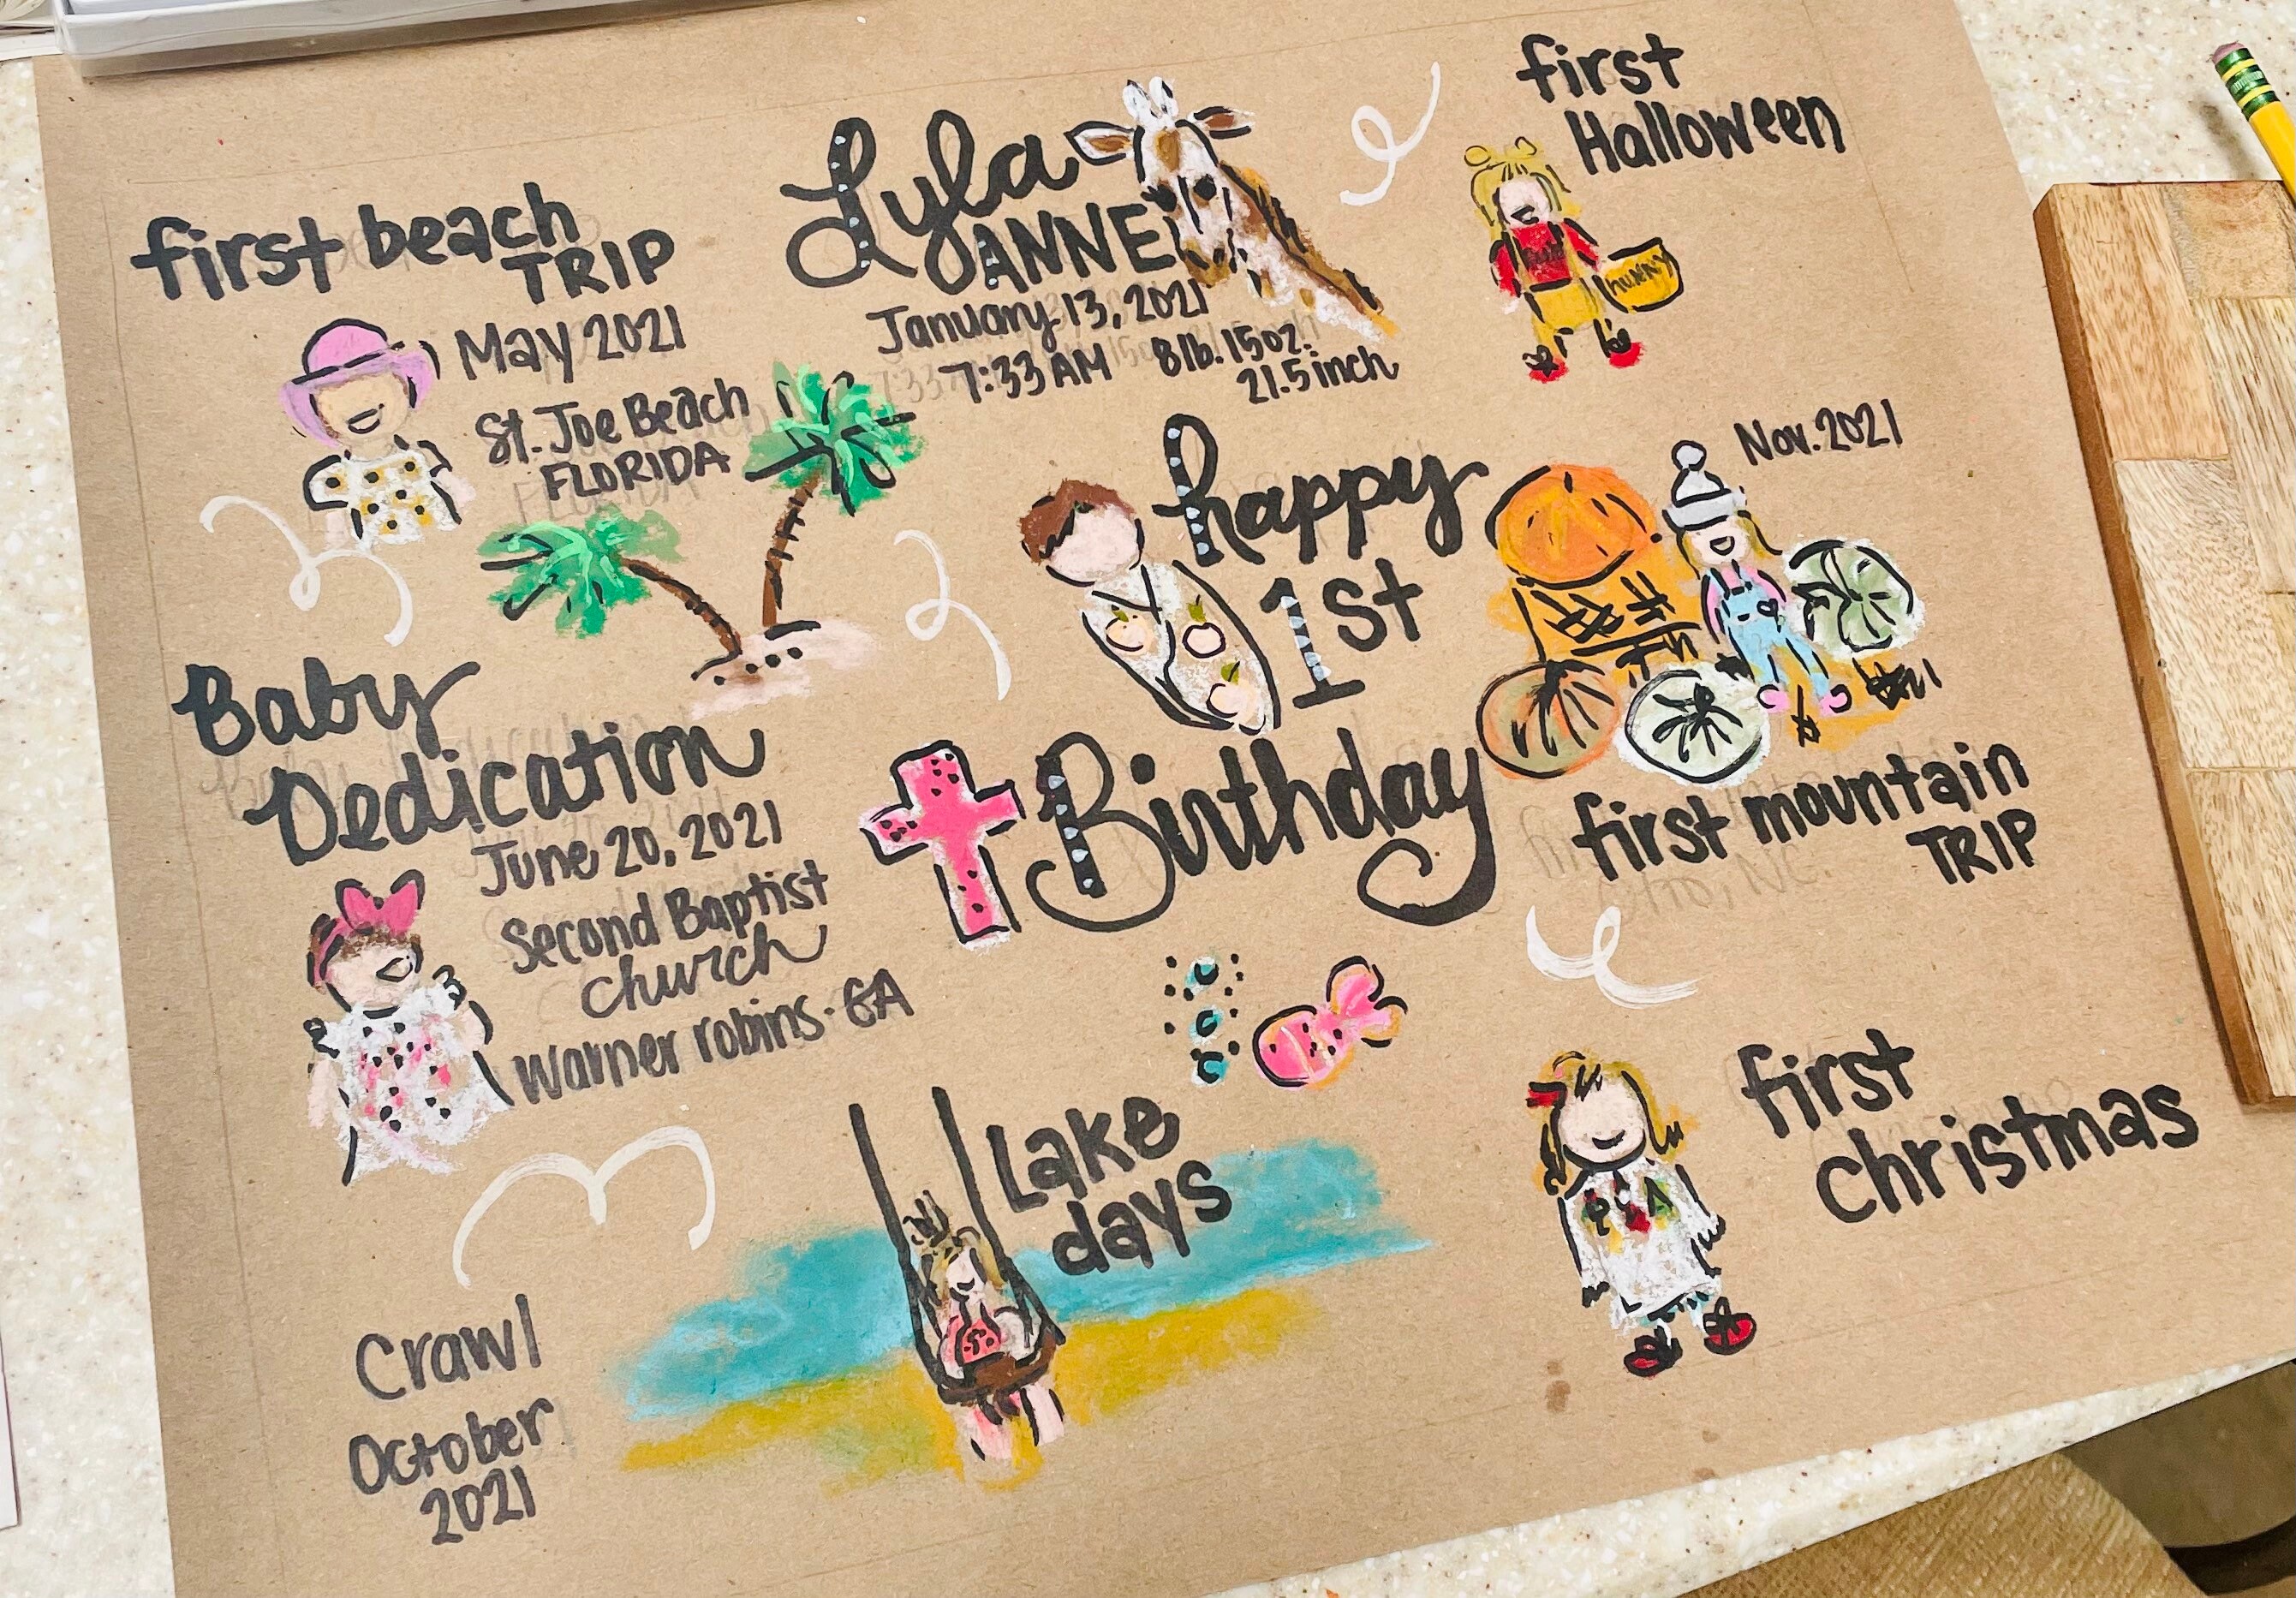 Lyla
ANNE
January 13, 2021
7:33 AM 8lb. 15oz.
21.5 inch
first
Halloween
hunny
first beach
TRIP
May 2021
St. Joe Beach
FLORIDA
happy
1st
Birthday
Nov. 2021
first mountain
TRIP
Baby
Dedication
June 20, 2021
Second Baptist
Church
Warner robins. GA
Lake
days
first
christmas
Crawl
October
2021